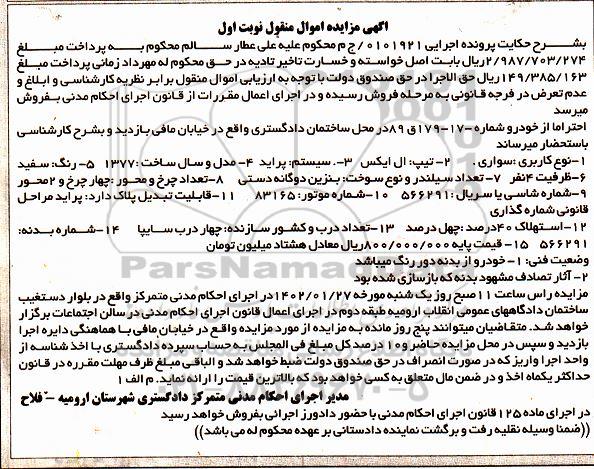 آگهی مزایده اموال منقول نوبت اول
بشرح حکایت پرونده اجرایی ۰۱۰۱۹۲۱/ج م محکوم علیه علی عطار سالم محکوم به پرداخت مبلغ
۲/۹۸۷/۷۰۳/۲۷۴ریال بابت اصل خواسته و خسارت تاخیر تادیه در حق محکوم له مهرداد زمانی پرداخت مبلغ
۱۴۹/۳۸۵/۱۶۳ریال حق الاجرا در حق صندوق دولت با توجه به ارزیابی اموال منقول برابر نظریه کارشناسی و ابلاغ و
عدم تعرض در فرجه قانونی به مرحله فروش رسیده و در اجرای اعمال مقررات از قانون اجرای احکام مدنی بفروش
میرسد
احتراما از خودرو شماره ۱۷-۱۷۹ق ۸۹در محل ساختمان دادگستری واقع در خیابان مافی بازدید و بشرح کارشناسی
باستحضار میرساند
۱-نوع کاربری :سواری . ۲- تیپ: ال ایکس ۳-. سیستم: پراید ۴- مدل و سال ساخت :۱۳۷۷ ۵- رنگ: سفید
۶-ظرفیت ۴نفر ۷- تعداد سیلندر و نوع سوخت: بنزین دوگانه دستی ۸-تعداد چرخ و محور :چهار چرخ و ۲محور
۹-شماره شاسی یا سریال :۵۶۶۲۹۱ ۱۰-شماره موتور: ۸۳۱۶۵ ۱۱-قابلیت تبدیل پلاک دارد: پراید مراحل
قانونی شماره گذاری
۱۲-استهلاک ۴۰درصد :چهل درصد ۱۳-تعداد درب و کشور سازنده: چهار درب سایپا ۱۴-شماره بدنه:
۵۶۶۲۹۱ ۱۵- قیمت پایه ۸۰۰/۰۰۰/۰۰۰ریال معادل هشتاد میلیون تومان
وضعیت فنی: ۱-خودرو از بدنه دور رنگ میباشد
۲-آثار تصادف مشهود بدنه که بازسازی شده بود
مزایده راس ساعت ۱۱صبح روز یک شنبه مورخه ۱۴۰۲/۰۱/۲۷در اجرای احکام مدنی متمرکز واقع در بلوار دستغیب
ساختمان دادگاههای عمومی انقلاب ارومیه طبقه دوم در اجرای اعمال قانون اجرای احکام مدنی در سالن اجتماعات برگزار
خواهد شد. متقاضیان میتوانند پنج روز مانده به مزایده از مورد مزایده واقع در خیابان مافی با هماهنگی دایره اجرا
بازدید و سپس در محل مزایده حاضر و۱۰درصد کل مبلغ فی المجلس به حساب سپرده دادگستری با اخذ شناسه از
واحد اجرا واریز که در صورت انصراف در حق صندوق دولت ضبط خواهد شد و الباقی مبلغ ظرف مهلت مقرره در قانون
حداکثر یکماه اخذ و در ضمن مال متعلق به کسی خواهد بود که بالاترین قیمت را ارائه نماید. م الف ۱
مدیر اجرای احکام مدنی متمرکز دادگستری شهرستان ارومیه - فلاح
در اجرای ماده ۱۲۵قانون اجرای احکام مدنی با حضور دادورز اجرائی بفروش خواهد رسید
((ضمنا وسیله نقلیه رفت و برگشت نماینده دادستانی بر عهده محکوم له می باشد))